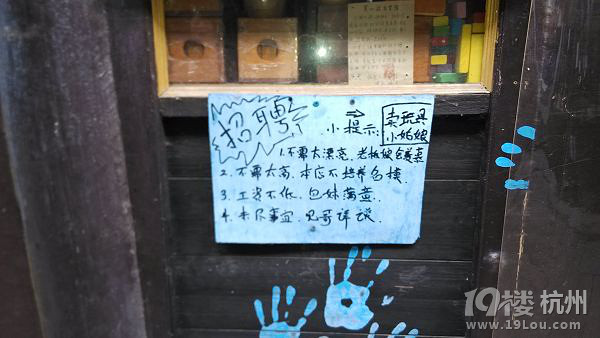 招聘
小提示:
卖玩具
小姑娘
1.不要太漂亮,老板娘会羡慕
2.不要太高,本店不培养名模.
3.工资不低,包妹满意.
4.未尽事宜,见哥详谈.
19楼 杭州
www.19Lou.com